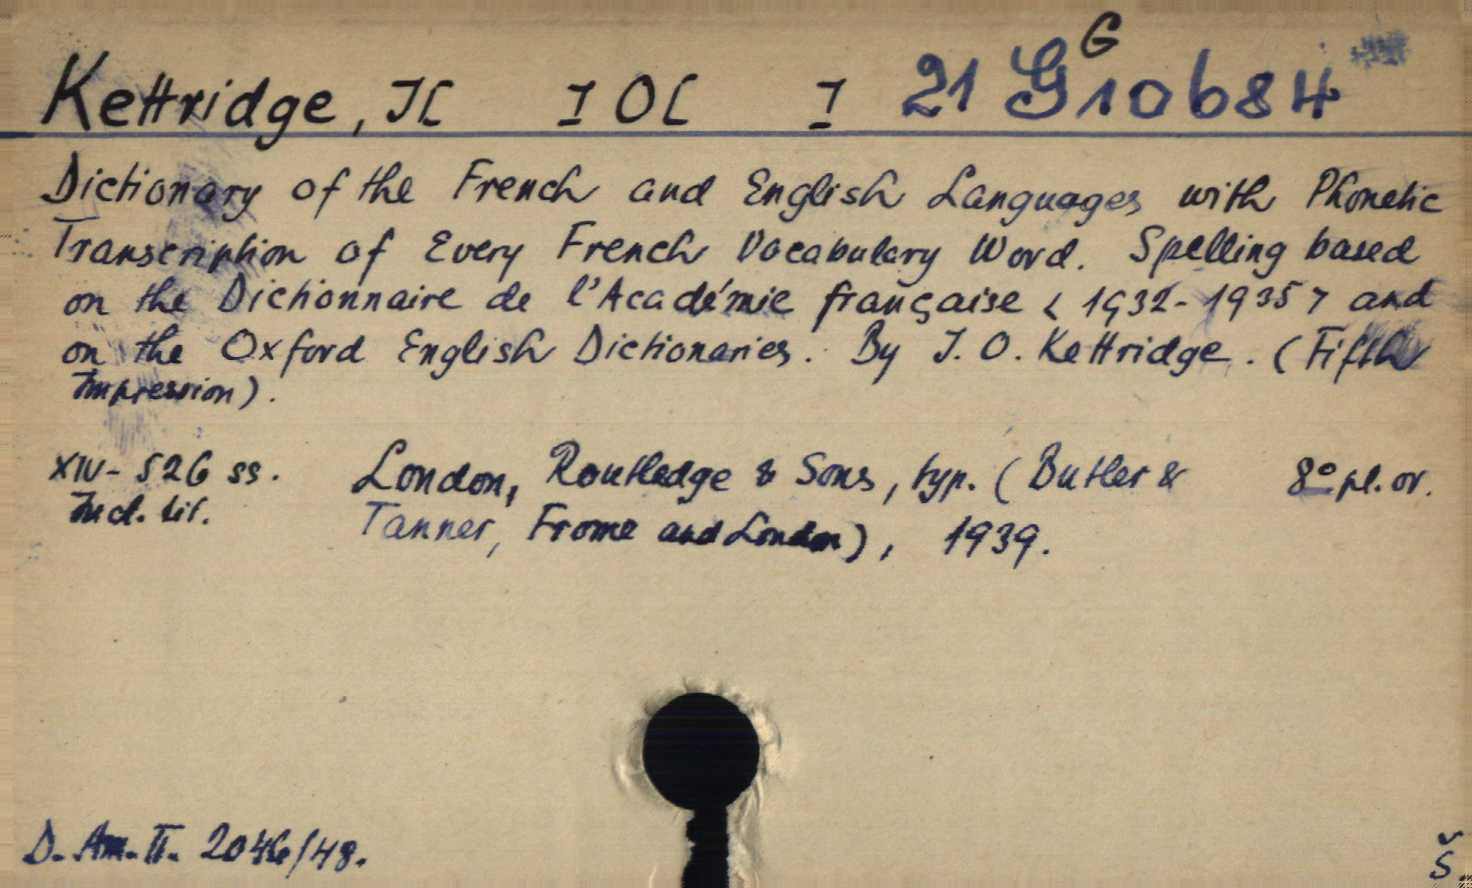 Kettridge, J[ I O[ I 21 G 10 b 84
G
Dictionary of the French and English Languages with Phonetic
Transcription of Every French Vocabulary Word. Spelling based
on the Dictionnaire de l'Académie française < 1932-1935 > and
on the Oxford English Dictionaries. By J. O. Kettridge. (Fifth
Impression).
XIV-526 ss.
London, Routledge & Sons, typ. (Butler &
8° pl. or.
Incl. tit.
Tanner, Frome and London), 1939.
D. Am. II. 2046/48.
Š.